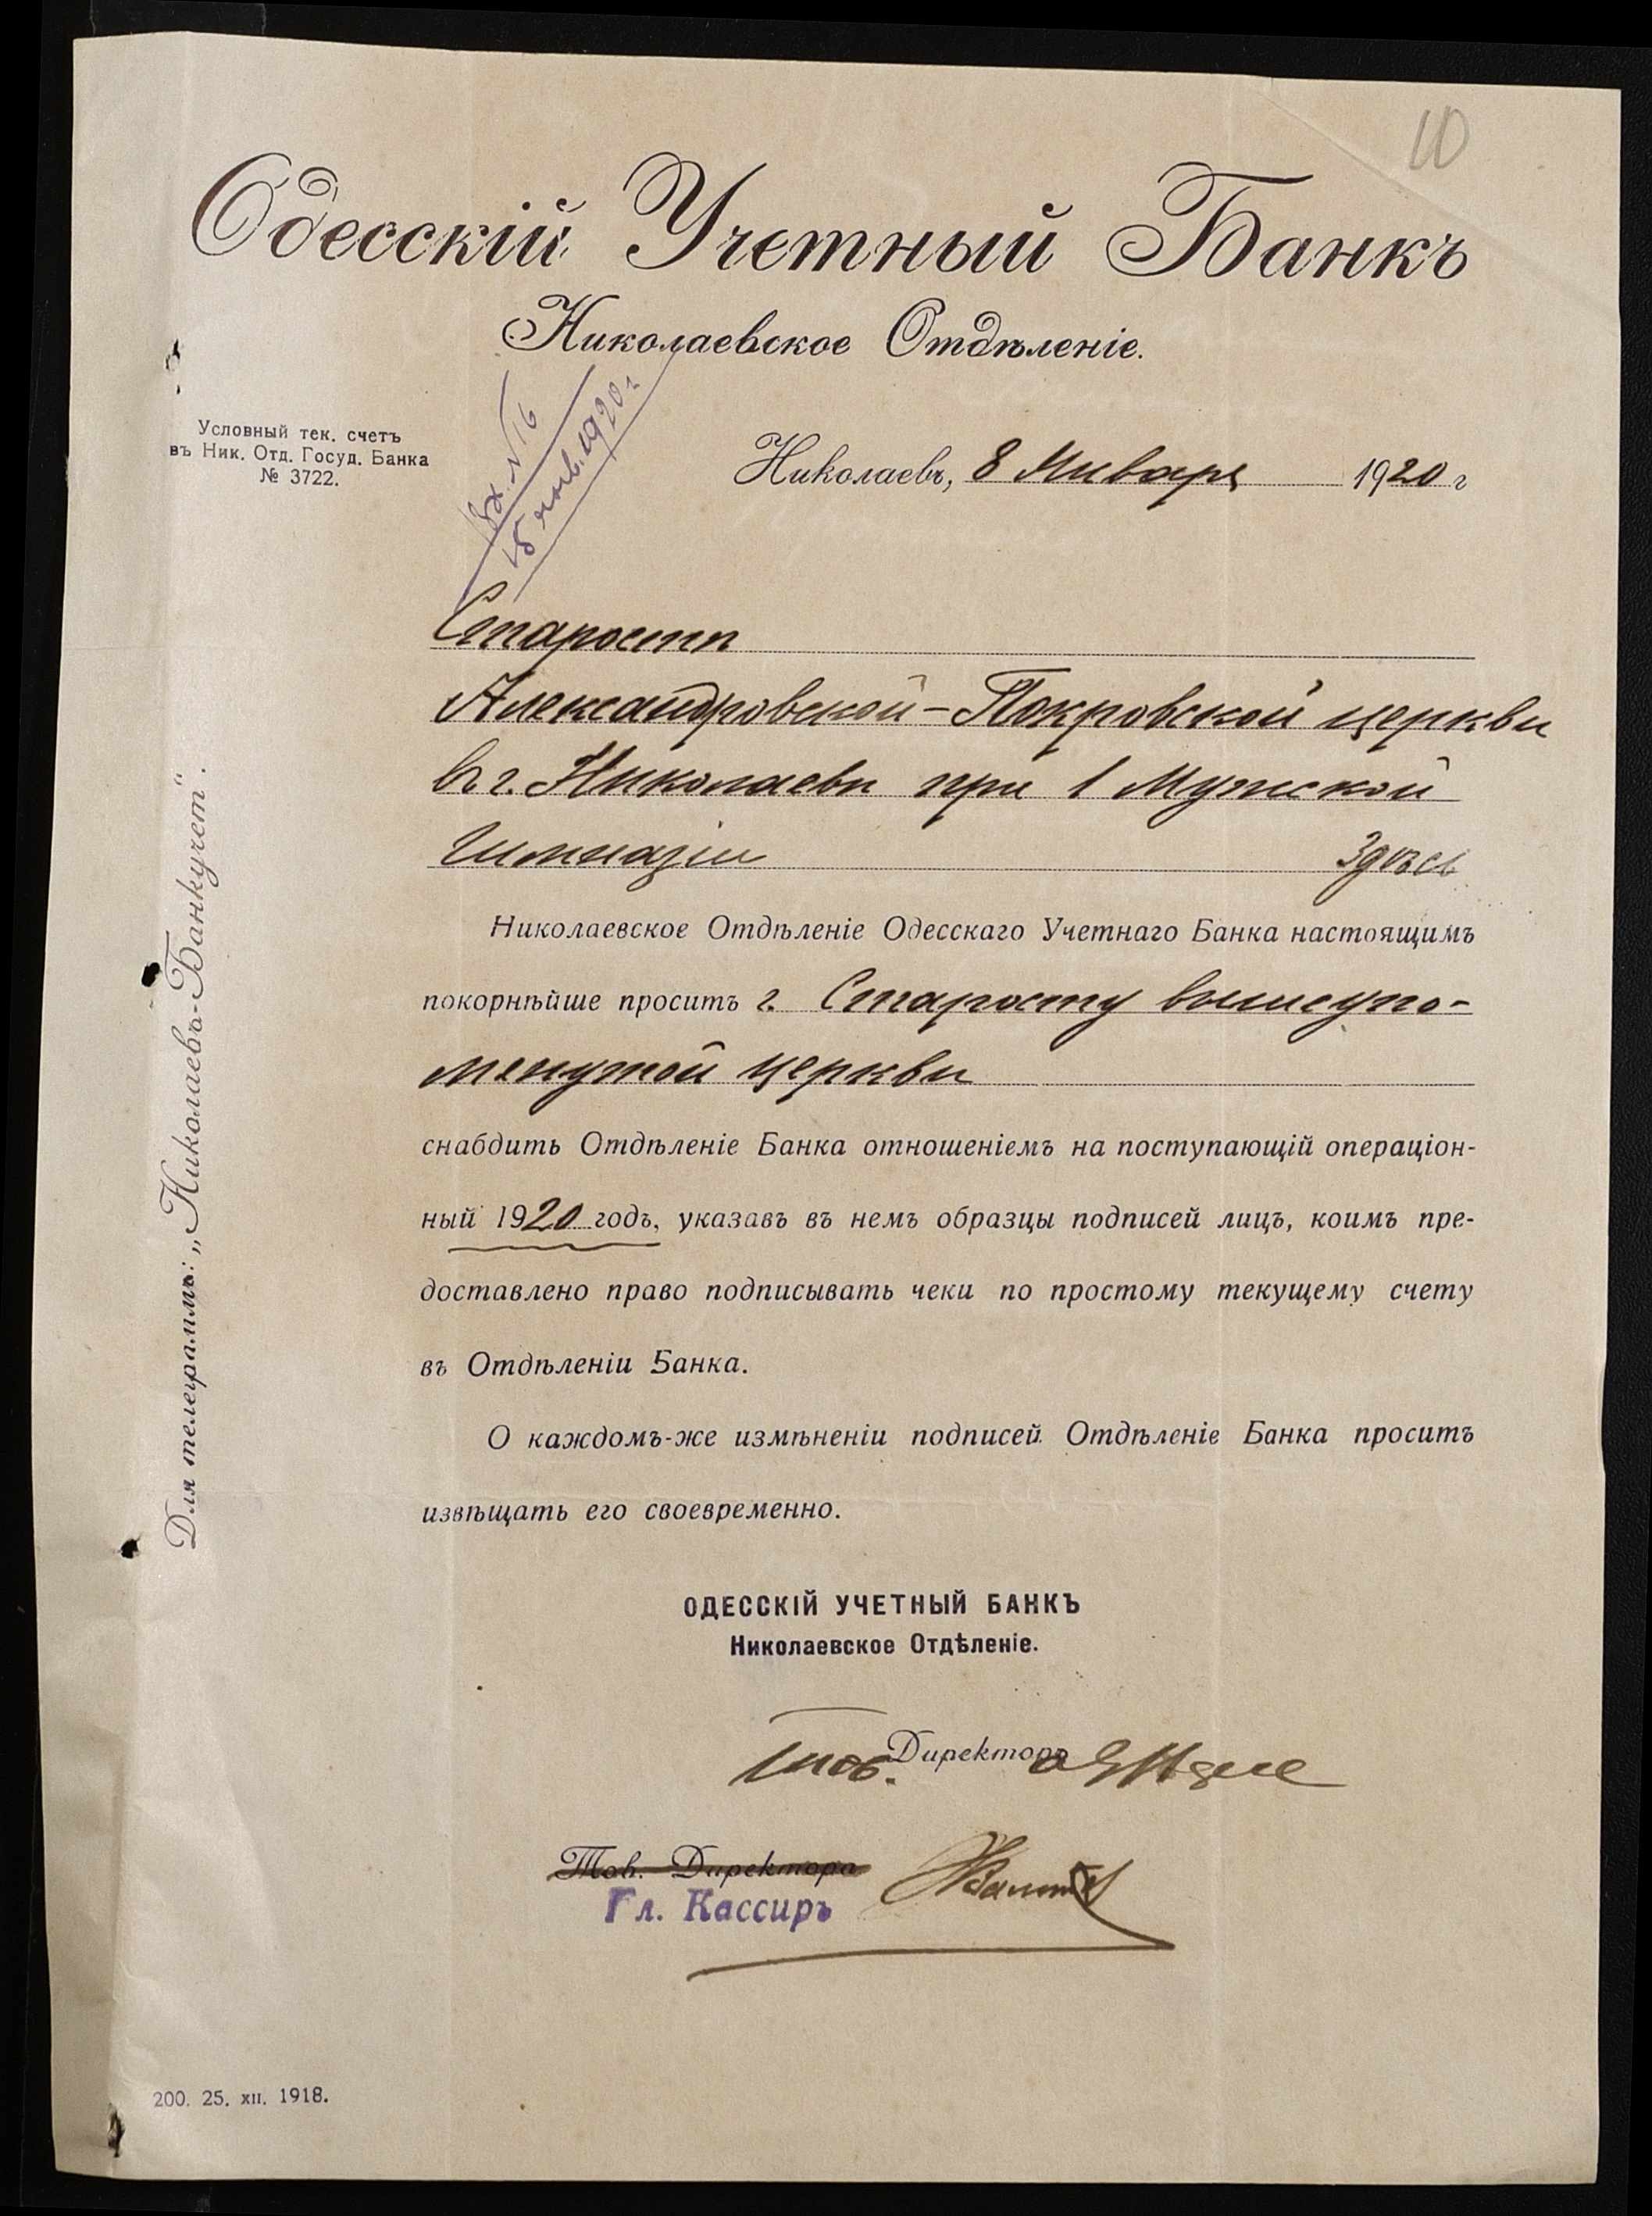 10
Одесскій Учетный Банкъ
Николаевское Отдѣленіе.
Условный тек. счетъ
въ Ник. Отд. Госуд. Банка
№ 3722.
Вх. № 16
15 янв. 1920 г.
Николаевъ, 8 Января 1920 г
Старостѣ
Александровской-Покровской церкви
въ г. Николаевѣ при 1 Мужской
Гимназіи Здѣсь
Николаевское Отдѣленіе Одесскаго Учетнаго Банка настоящимъ
покорнѣйше проситъ г. Старосту вышеупо-
менутой церкви
снабдить Отдѣленіе Банка отношеніемъ на поступающій операціон-
ный 1920 годъ, указавъ въ немъ образцы подписей лицъ, коимъ пре-
доставлено право подписывать чеки по простому текущему счету
въ Отдѣленіи Банка.
О каждомъ-же измѣненіи подписей Отдѣленіе Банка проситъ
извѣщать его своевременно.
Для телеграммъ: „Николаевъ-Банкучет".
ОДЕССКІЙ УЧЕТНЫЙ БАНКЪ
Николаевское Отдѣленіе.
Тов. Директора
Тов. Директора
Гл. Кассиръ
200. 25. XII. 1918.